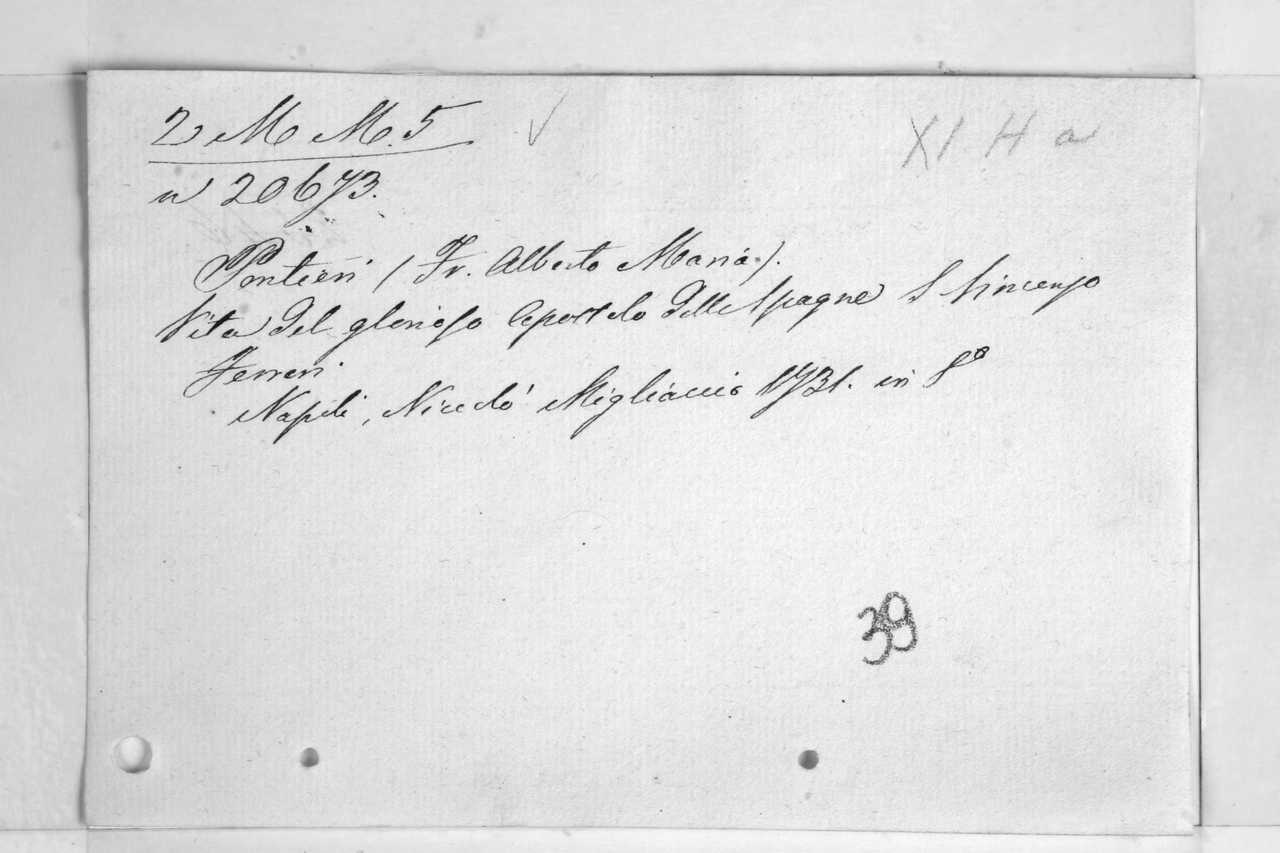 2 M M. 5
XI H a
n 20673.
Pontieri (Fr. Alberto Maria).
Vita del glorioso Apostolo delle Spagne S Vincenzo
Ferreri
Napoli, Nicolò Migliaccio 1731. in 8º
39